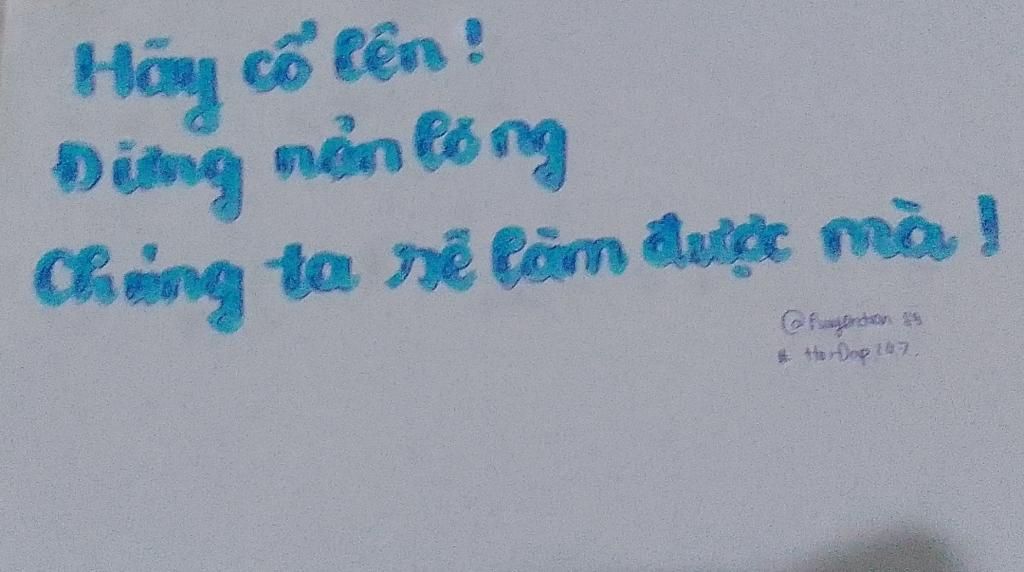 Hãy cố lên!
Đừng nản lòng
Chúng ta sẽ làm được mà!